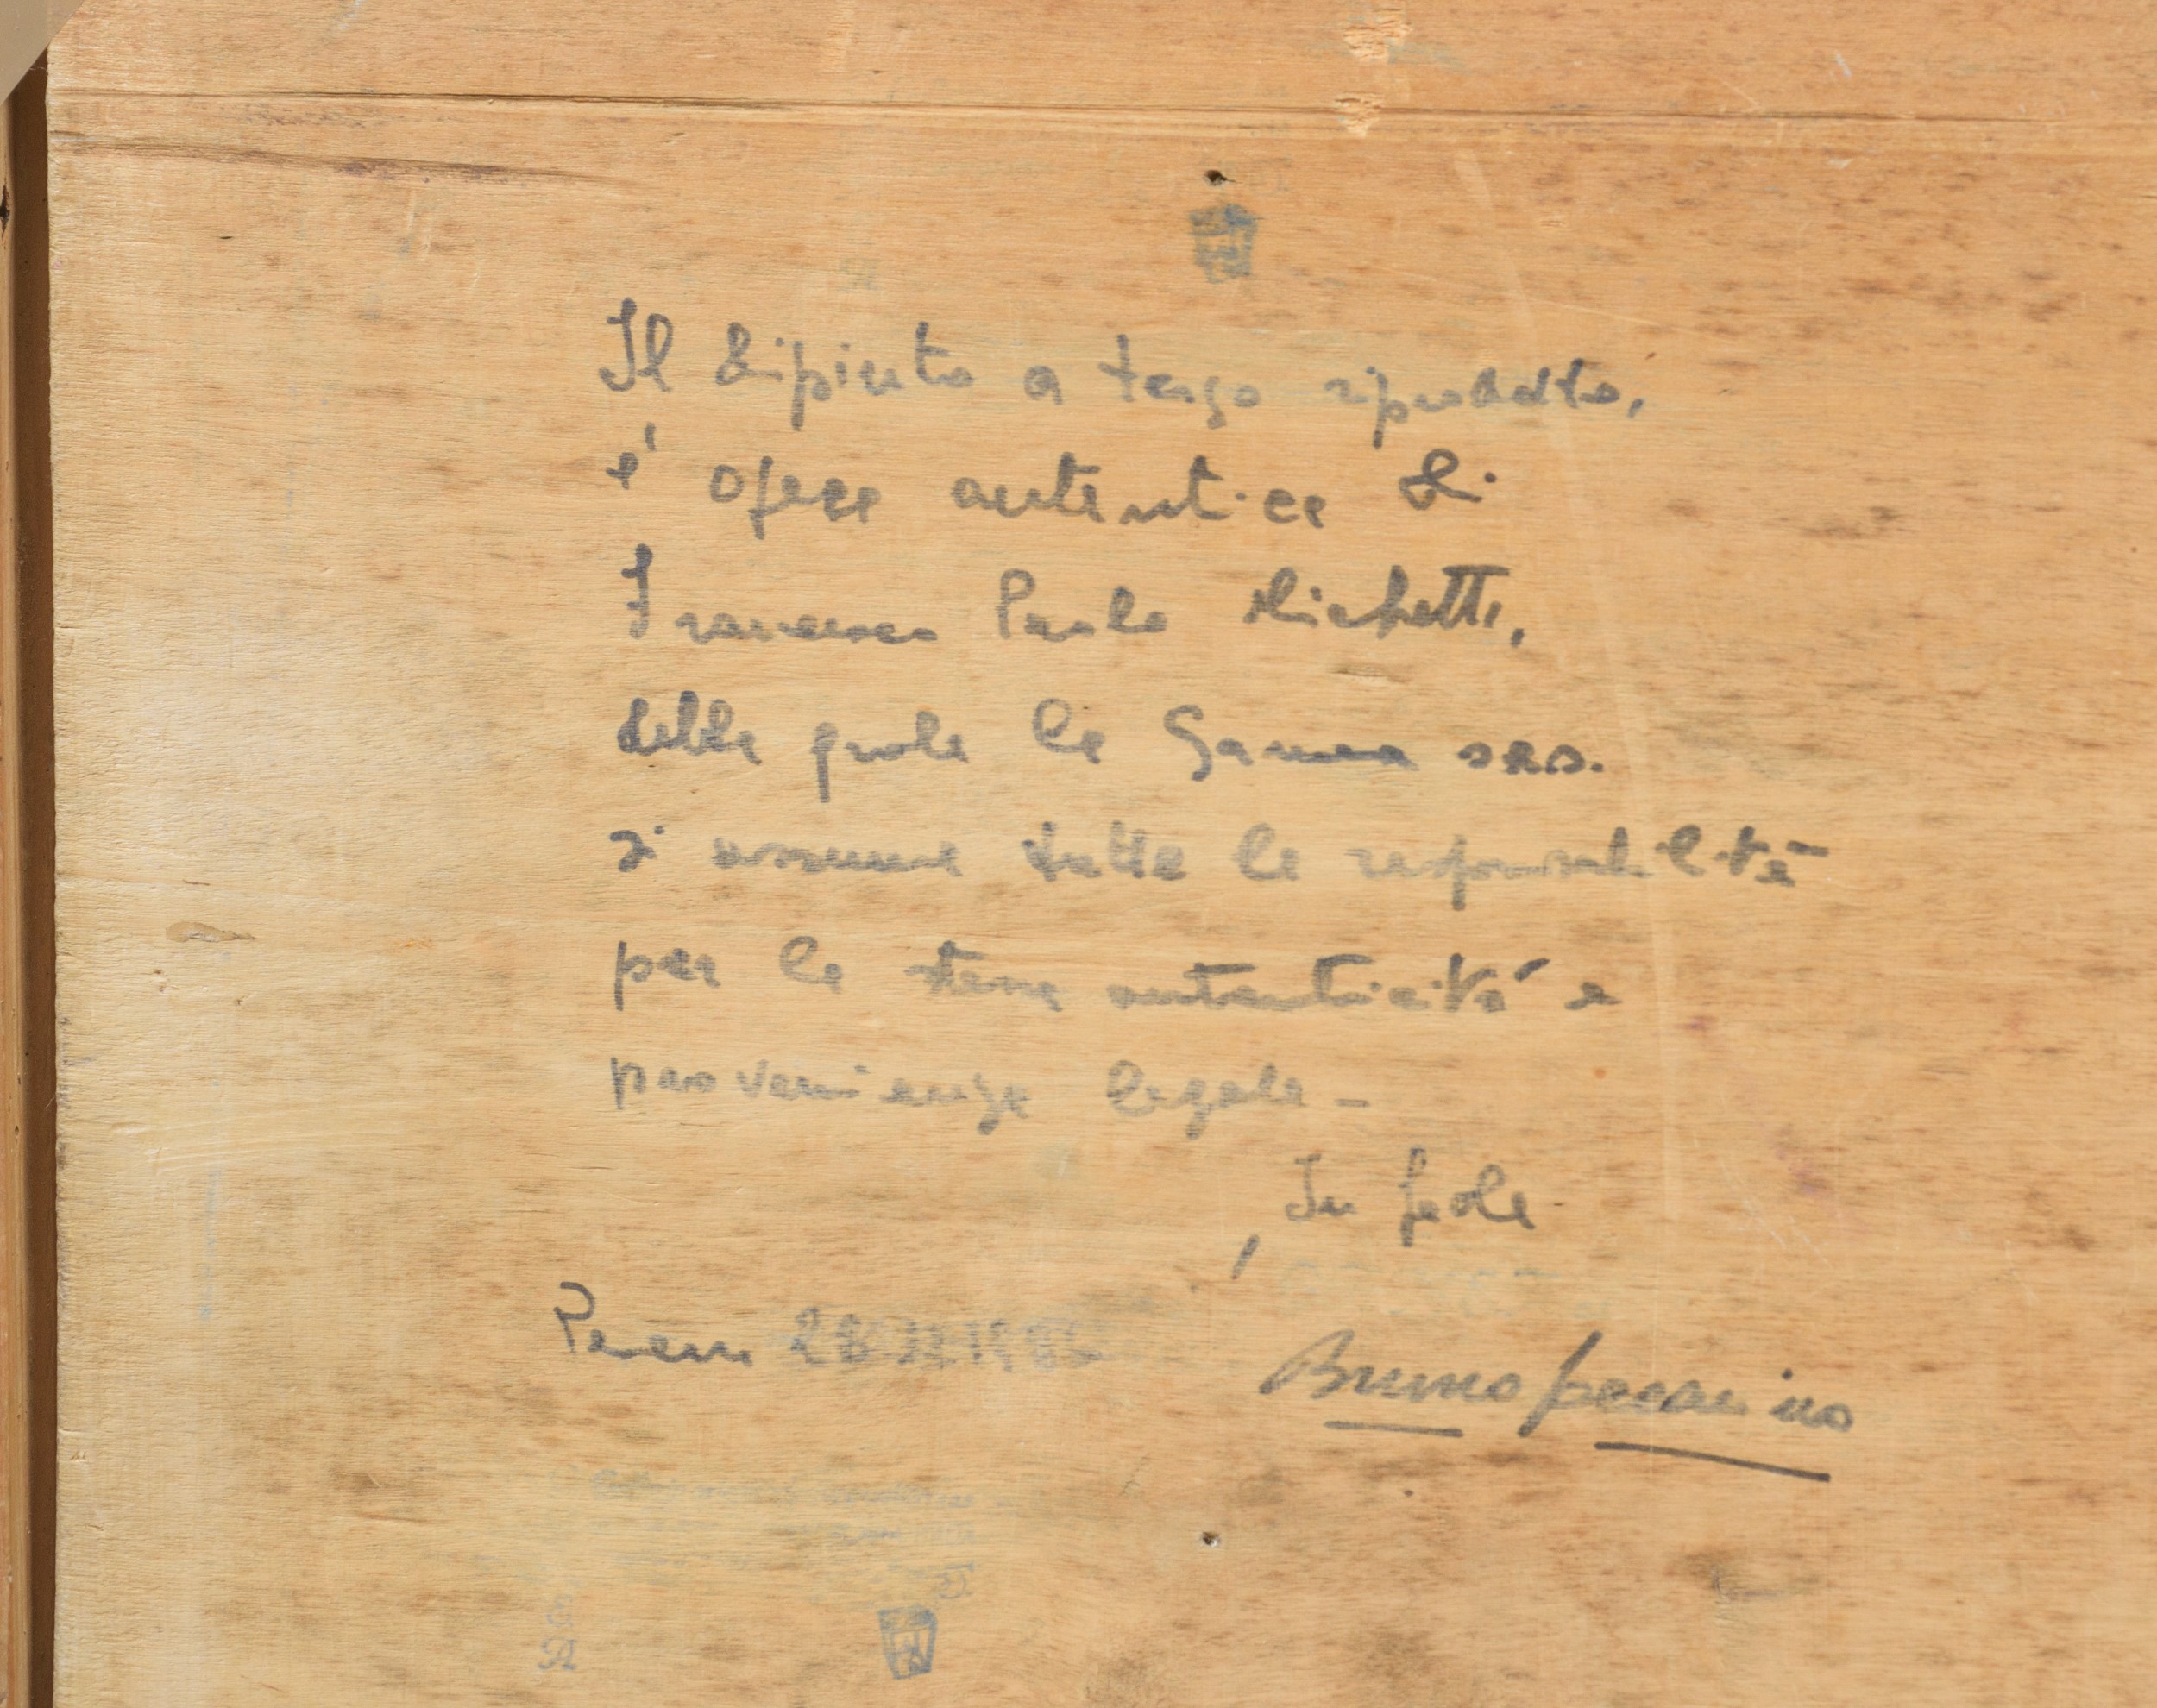 Il dipinto a tergo riprodotto,
e' opera autentica di
Francesco Paolo Michetti,
della quale la Gamma sas.
si assume tutta la responsabilità
per la sua autenticità e
provenienza legale -
In fede
Bruno